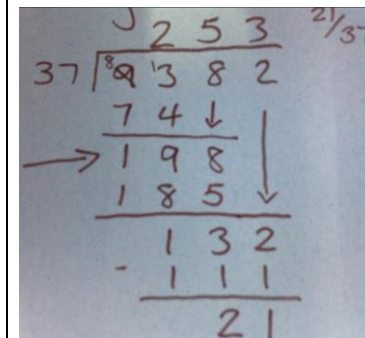 2 5 3 21/37
37 9 8 1 3 8 2
7 4 ↓
→ 1 9 8
1 8 5 ↓
1 3 2
- 1 1 1
2 1